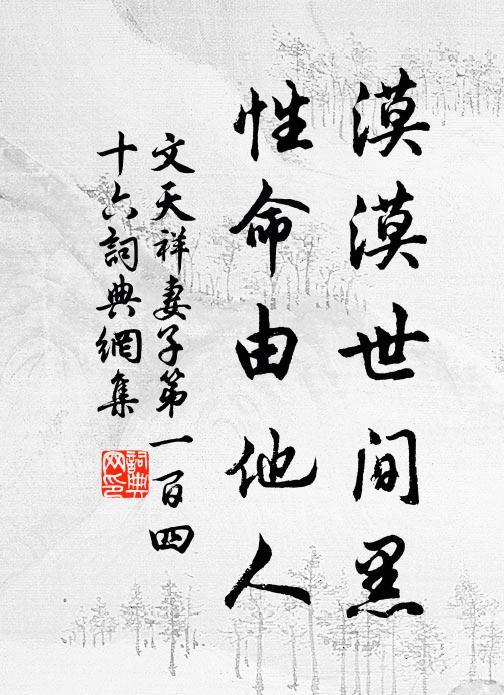 漠漠世间黑
性命由他人
文天祥妻子第一百四
十六詞典網集
詞典
网印